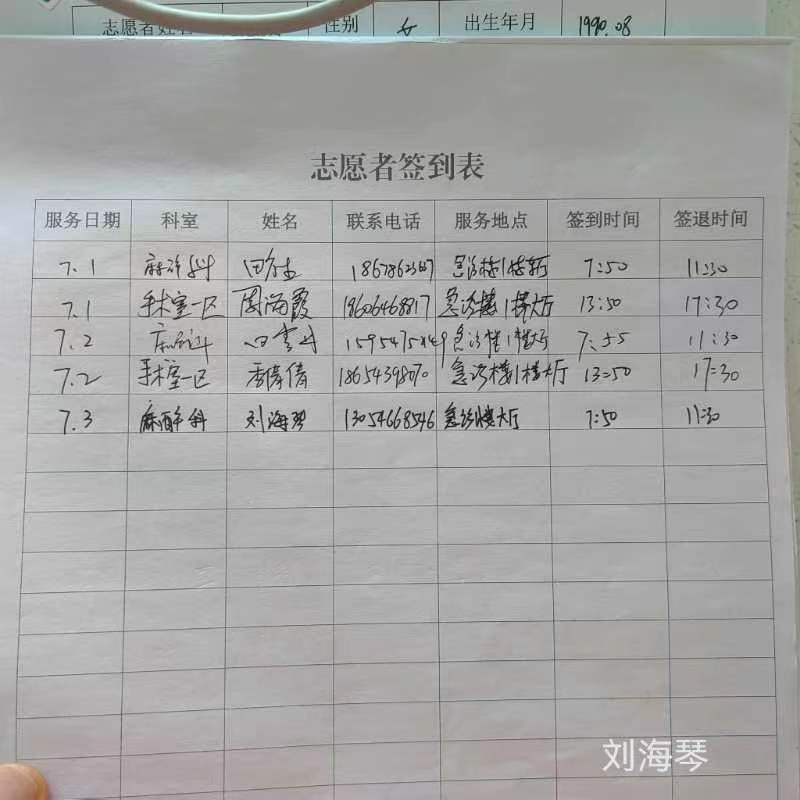 志愿者姓名 性别 女 出生年月 1990.08
志愿者签到表
服务日期 科室 姓名 联系电话 服务地点 签到时间 签退时间
7.1 麻醉科 7:50 11:30
7.1 手术室一区 周满霞 18606468817 急诊楼1楼大厅 13:50 17:30
7.2 麻醉科 急诊楼1楼大厅 7:55 11:30
7.2 手术室一区 季倩倩 18654398070 急诊楼1楼大厅 13:50 17:30
7.3 麻醉科 刘海琴 13054668546 急诊楼大厅 7:50 11:30
刘海琴